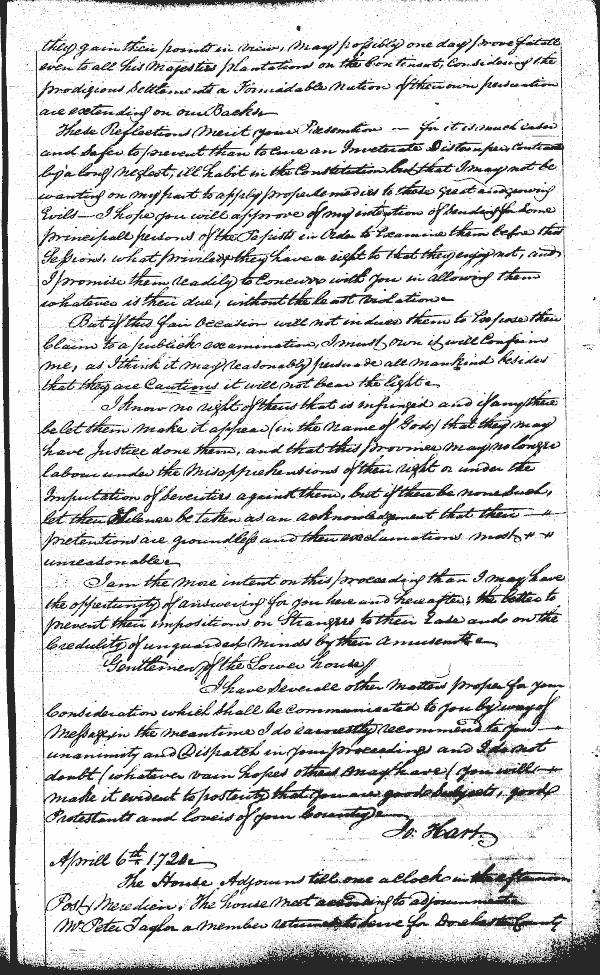 they gain their points in view, may possibly one day prove fatall
even to all his Majesties plantations on the Continent, Considering the
prodigious Settlements a Formidable Nation of their own perswation
are extending on our Backs
These Reflections Merit your Resention – for it is much easier
and safer to prevent than to Cure an Inveterate Distemper, contracted
by a long neglect, ill habit in the Constitution but that I may not be
wanting on my part to apply proper remedies to these great and growing
Evils – I hope you will approve of my intention of sending for some
principall persons of the Papists in Order to Examine them before this
Sessions, what priviledge they have a right to that they enjoy not, and
I promise them readily to Concurr with you in allowing them
whatever is their due, without the least Violation
But if this fair Occasion will not induce them to Expose their
Claim to a publick examination, I must own it will Confirm
me, as I think it may reasonably perswade all mankind besides
that they are Cautious it will not bear the light
I know no right of theirs that is infringed and if any there
be let them make it appear (in the Name of God) that they may
have Justice done them, and that this province may no longer
labour under the Misapprehensions of their right or under the
Imputation of Severities against them, but if there be none Such,
let their Silence be taken as an acknowledgement that their
pretentions are groundless and their exclamations most
unreasonable
I am the more intent on this proceeding than I may have
the oppertunity of answering for you here and hereafter; the better to
prevent their impositions on Strangers to their Ease and on the
Credulity of unguarded Minds by their Amusements
Gentlemen of the Lower house
I have Severall other Matters proper for your
Consideration which shall be communicated to you by way of
Message, in the meantime I do earnestly recommend to you
unanimity and Dispatch in your proceedings and I do not
doubt (whatever vain hopes others may have) you will
make it evident to posterity that you are good Subjects, good
Protestants and lovers of your Country
Jo. Hart
Aprill 6th 1720
The House Adjourns till one a Clock in the afternoon
Post Meridien, The house met according to adjournment
Mr. Peter Taylor a member returned to serve for Dorchester County